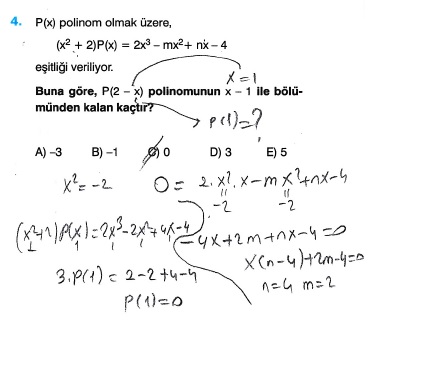 4. P(x) polinom olmak üzere,
(x² + 2)P(x) = 2x³ – mx² + nx – 4
eşitliği veriliyor.
x = 1
Buna göre, P(2 – x) polinomunun x – 1 ile bölü-
münden kalan kaçtır?
P(1) = ?
A) –3 B) –1 C) 0 D) 3 E) 5
x² = -2
0 = 2.x².x - m x² + nx - 4
-2 -2
(x²+2)P(x) = 2x³ - 2x² + 4x - 4
1 1 1 1 1
-4x + 2m + nx - 4 = 0
x(n-4) + 2m - 4 = 0
3.P(1) = 2 - 2 + 4 - 4
n = 4 m = 2
P(1) = 0